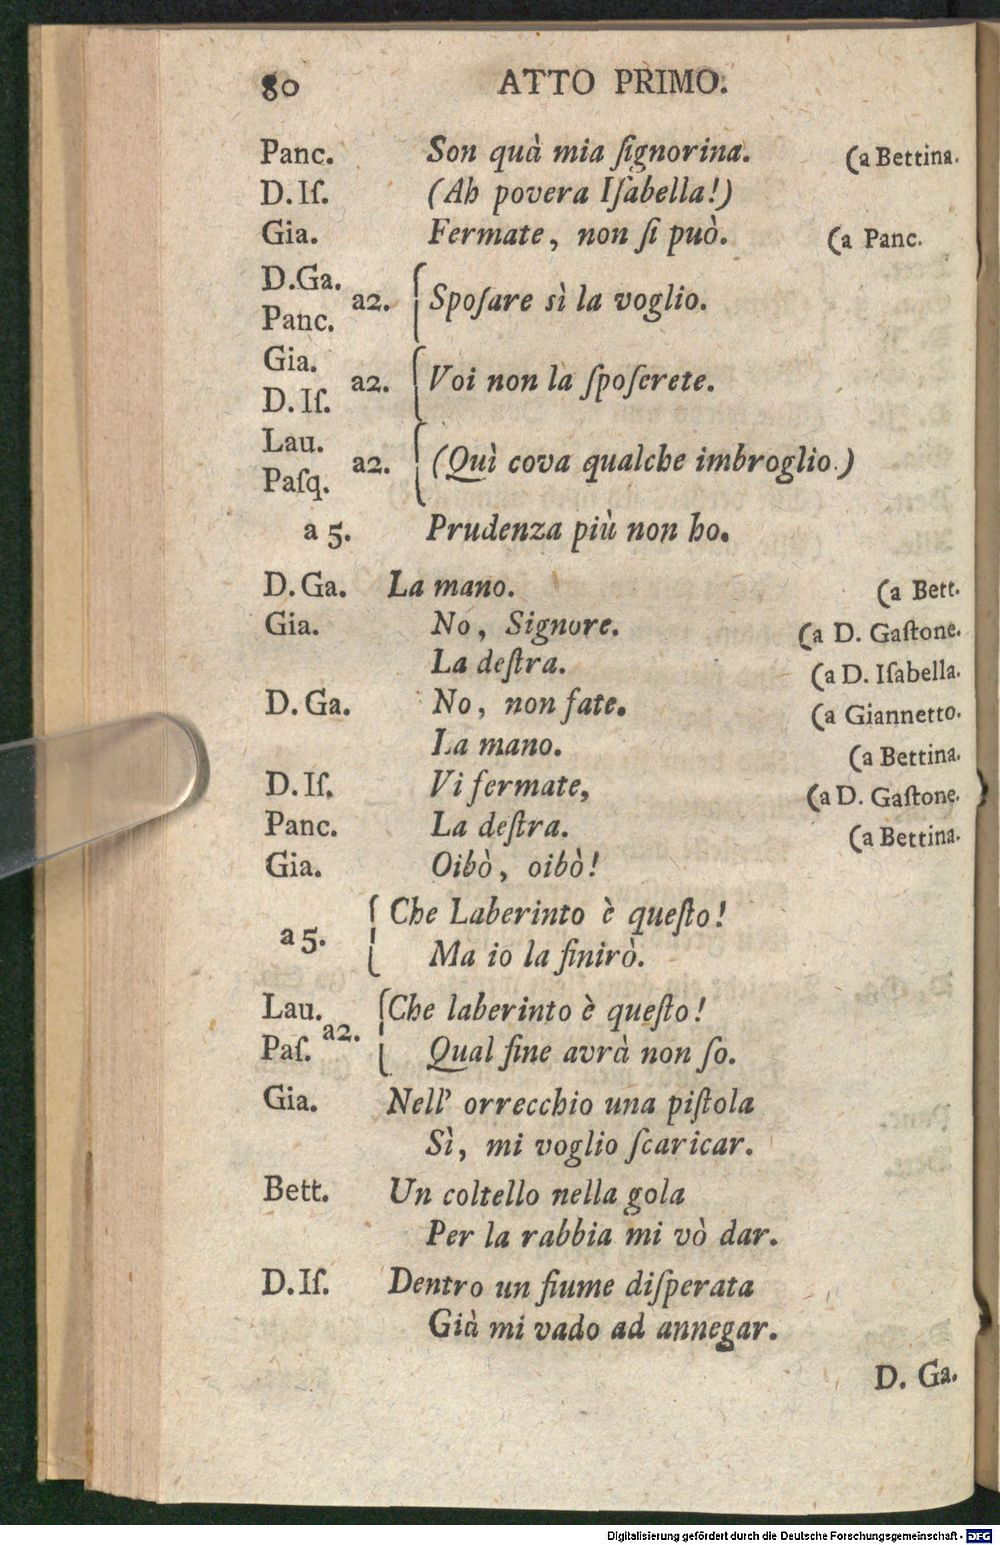 80 ATTO PRIMO.
Panc. Son quà mia ſignorina. (a Bettina.
D. Iſ. (Ah povera Iſabella!)
Gia. Fermate, non ſi può. (a Panc.
D.Ga.
Panc. a2. Spoſare sì la voglio.
Gia.
D. Iſ. a2. Voi non la ſpoſerete.
Lau.
Paſq. a2. (Quì cova qualche imbroglio.)
a 5. Prudenza più non ho.
D. Ga. La mano. (a Bett.
Gia. No, Signore. (a D. Gaſtone.
La deſtra. (a D. Iſabella.
D. Ga. No, non fate. (a Giannetto.
La mano. (a Bettina.
D. Iſ. Vi fermate, (a D. Gaſtone.
Panc. La deſtra. (a Bettina.
Gia. Oibò, oibò!
a 5. Che Laberinto è queſto!
Ma io la finirò.
Lau. Che laberinto è queſto!
Paſ. a2. Qual fine avrà non ſo.
Gia. Nell' orrecchio una piſtola
Sì, mi voglio ſcaricar.
Bett. Un coltello nella gola
Per la rabbia mi vò dar.
D. Iſ. Dentro un fiume diſperata
Già mi vado ad annegar.
D. Ga.
Digitalisierung gefördert durch die Deutsche Forschungsgemeinschaft - DFG